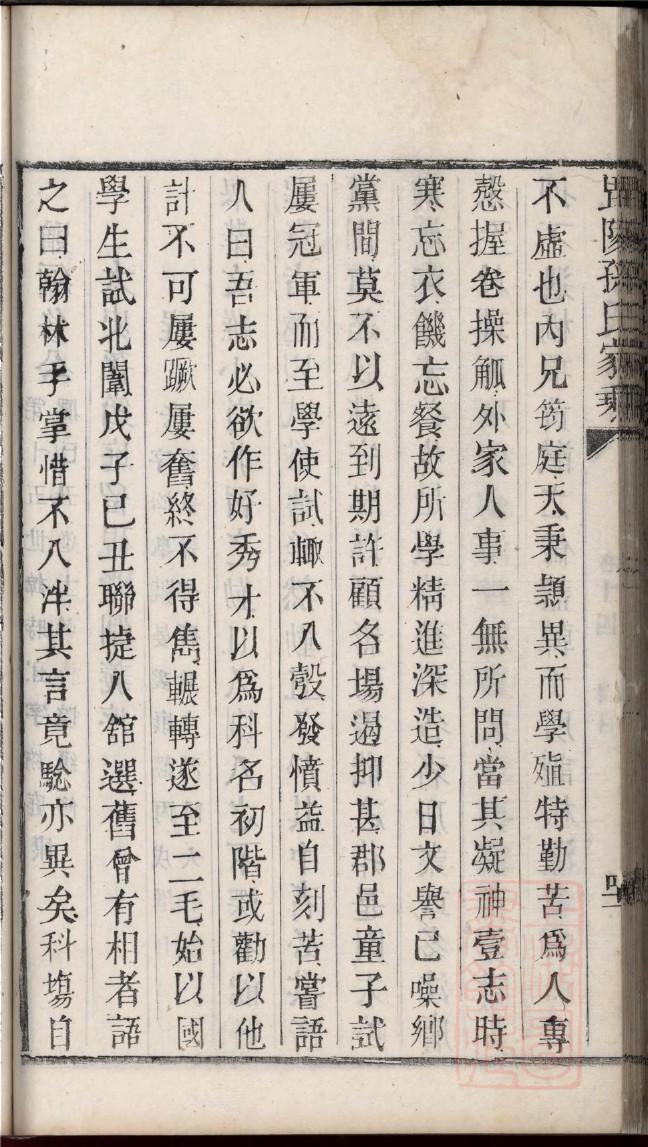 毘陵孫氏家乘
不虛也內兄筠庭天秉穎異而學殖特勤苦爲人專
慤握卷操觚外家人事一無所問當其凝神壹志時
寒忘衣饑忘餐故所學精進深造少日文譽已噪鄉
黨間莫不以遠到期許顧名場遏抑甚郡邑童子試
屢冠軍而至學使試輙不入彀發憤益自刻苦嘗語
人曰吾志必欲作好秀才以爲科名初階或勸以他
計不可屢蹶屢奮終不得雋輾轉遂至二毛始以國
學生試北闈戊子己丑聯捷入館選舊曾有相者語
之曰翰林手掌惜不入泮其言竟驗亦異矣科塲自